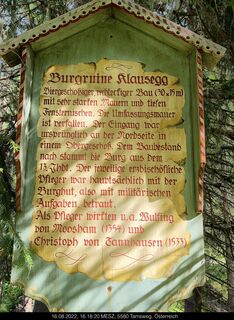 Burgruine Klausegg
Viergeschoßiger, rechteckiger Bau (30 x 15 m)
mit sehr starken Mauern und tiefen
Fensternischen. Die Umfassungsmauer
ist verfallen. Der Eingang war
ursprünglich an der Nordseite in
einem Obergeschoß. Dem Baubestand
nach stammt die Burg aus dem
13. Jhdt. Der jeweilige erzbischöfliche
Pfleger war hauptsächlich mit der
Burghut, also mit militärischen
Aufgaben, betraut.
Als Pfleger wirkten u.a. Wulfing
von Moosham (1354) und
Christoph von Tannhausen (1533)
16.08.2022, 16:18:20 MESZ, 5580 Tamsweg, Österreich